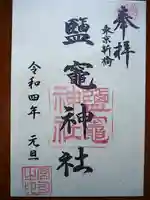 奉拝
東京新橋
鹽竈神社
鹽竈神社
令和四年 元旦